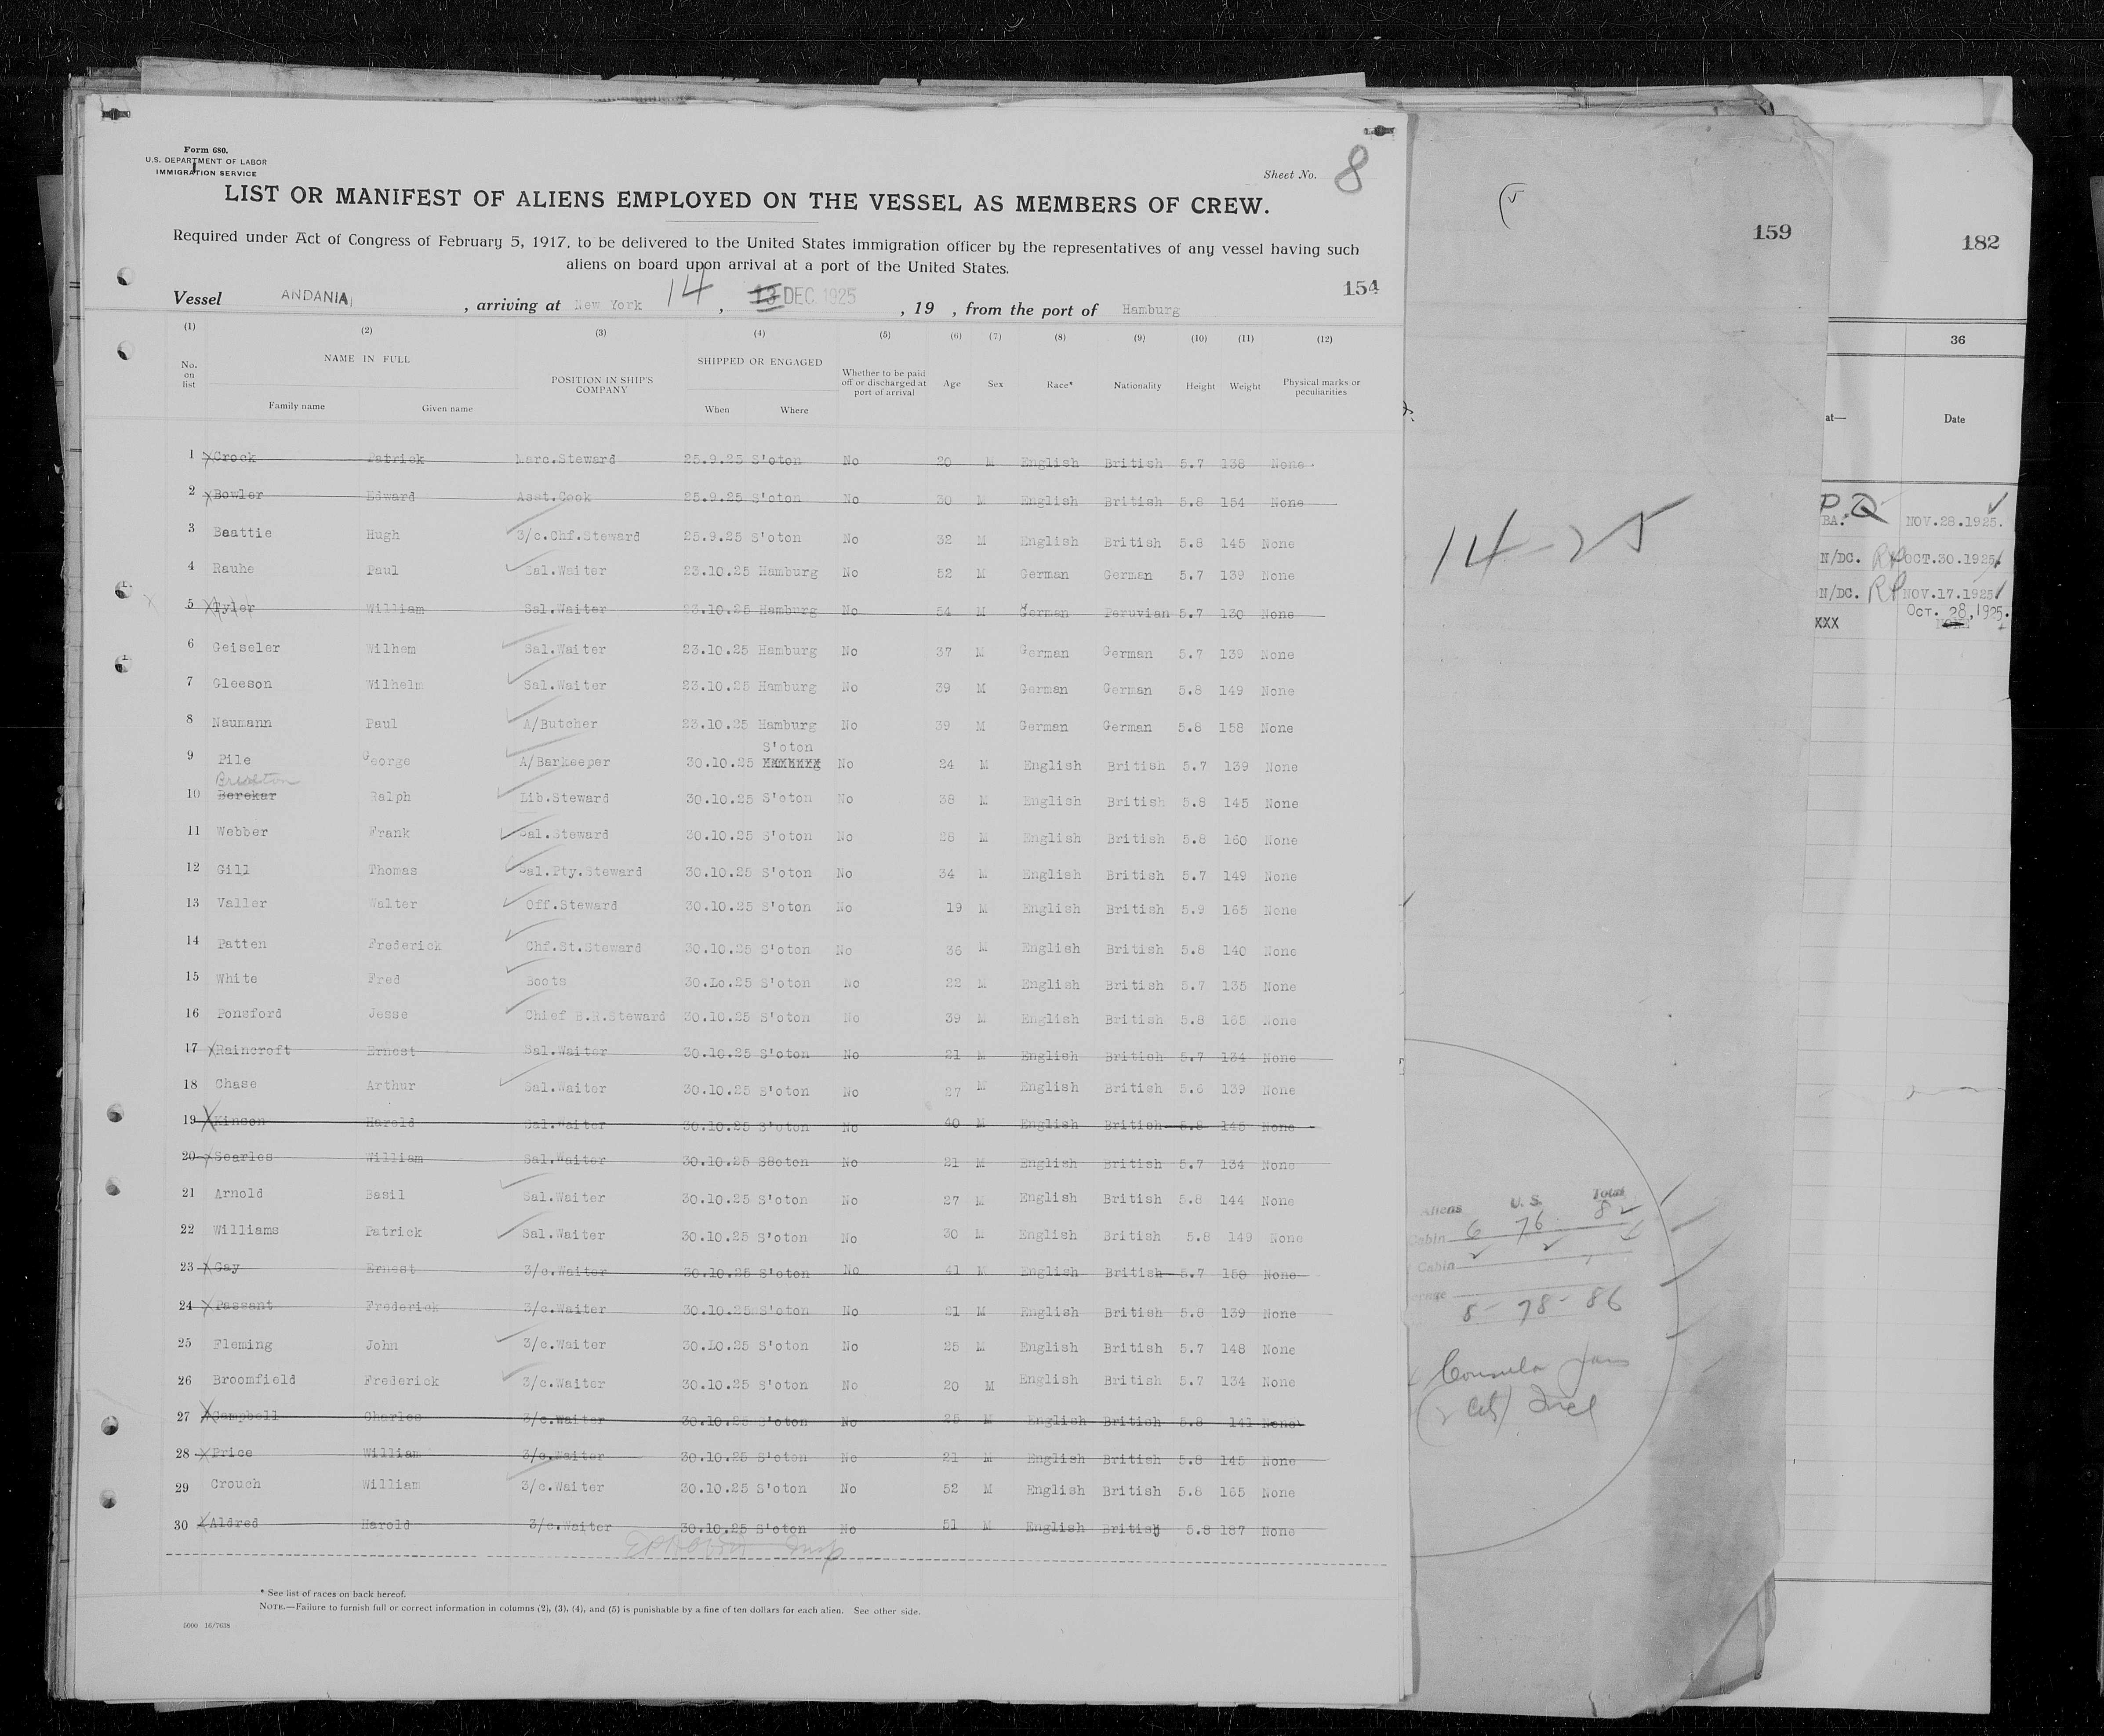 Form 680.
U.S. DEPARTMENT OF LABOR
IMMIGRATION SERVICE
Sheet No. 8
LIST OR MANIFEST OF ALIENS EMPLOYED ON THE VESSEL AS MEMBERS OF CREW.
Required under Act of Congress of February 5, 1917, to be delivered to the United States immigration officer by the representatives of any vessel having such
aliens on board upon arrival at a port of the United States.
154
Vessel ANDANIA, arriving at New York 14, 13 DEC 1925, 19 , from the port of Hamburg
(1) (2) (3) (4) (5) (6) (7) (8) (9) (10) (11) (12)
No. on list NAME IN FULL POSITION IN SHIP'S COMPANY SHIPPED OR ENGAGED Whether to be paid off or discharged at port of arrival Age Sex Race* Nationality Height Weight Physical marks or peculiarities
Family name Given name When Where
1 Crock Patrick Marc.Steward 25.9.25 S'oton No 20 M English British 5.7 138 None
2 Bowler Edward Asst.Cook 25.9.25 S'oton No 30 M English British 5.8 154 None
3 Beattie Hugh 3/c.Chf.Steward 25.9.25 S'oton No 32 M English British 5.8 145 None
4 Rauhe Paul Sal.Waiter 23.10.25 Hamburg No 52 M German German 5.7 139 None
5 Tyler William Sal.Waiter 23.10.25 Hamburg No 54 M German Peruvian 5.7 130 None
6 Geiseler Wilhem Sal.Waiter 23.10.25 Hamburg No 37 M German German 5.7 139 None
7 Gleeson Wilhelm Sal.Waiter 23.10.25 Hamburg No 39 M German German 5.8 149 None
8 Naumann Paul A/Butcher 23.10.25 Hamburg No 39 M German German 5.8 158 None
S'oton
9 Pile George A/Barkeeper 30.10.25 XXXXXXX No 24 M English British 5.7 139 None
10 Berekar Ralph Lib.Steward 30.10.25 S'oton No 38 M English British 5.8 145 None
11 Webber Frank Sal.Steward 30.10.25 S'oton No 28 M English British 5.8 160 None
12 Gill Thomas Sal.Pty.Steward 30.10.25 S'oton No 34 M English British 5.7 149 None
13 Valler Walter Off.Steward 30.10.25 S'oton No 19 M English British 5.9 165 None
14 Patten Frederick Chf.St.Steward 30.10.25 S'oton No 36 M English British 5.8 140 None
15 White Fred Boots 30.Lo.25 S'oton No 22 M English British 5.7 135 None
16 Ponsford Jesse Chief B.R.Steward 30.10.25 S'oton No 39 M English British 5.8 165 None
17 Raincroft Ernest Sal.Waiter 30.10.25 S'oton No 21 M English British 5.7 134 None
18 Chase Arthur Sal.Waiter 30.10.25 S'oton No 27 M English British 5.6 139 None
19 Kinson Harold Sal.Waiter 30.10.25 S'oton No 40 M English British 5.8 145 None
20 Searles William Sal.Waiter 30.10.25 S8oton No 21 M English British 5.7 134 None
21 Arnold Basil Sal.Waiter 30.10.25 S'oton No 27 M English British 5.8 144 None
22 Williams Patrick Sal.Waiter 30.10.25 S'oton No 30 M English British 5.8 149 None
23 Gay Ernest 3/c.Waiter 30.10.25 S'oton No 41 M English British 5.7 150 None
24 Passant Frederick 3/c.Waiter 30.10.25 S'oton No 21 M English British 5.8 139 None
25 Fleming John 3/c.Waiter 30.Lo.25 S'oton No 25 M English British 5.7 148 None
26 Broomfield Frederick 3/c.Waiter 30.10.25 S'oton No 20 M English British 5.7 134 None
27 Campbell Charles 3/c.Waiter 30.10.25 S'oton No 25 M English British 5.8 141 None
28 Price William 3/c.Waiter 30.10.25 S'oton No 21 M English British 5.8 145 None
29 Crouch William 3/c.Waiter 30.10.25 S'oton No 52 M English British 5.8 165 None
30 Aldred Harold 3/c.Waiter 30.10.25 S'oton No 51 M English British 5.8 187 None
* See list of races on back hereof.
NOTE.—Failure to furnish full or correct information in columns (2), (3), (4), and (5) is punishable by a fine of ten dollars for each alien. See other side.
5000 16/7638
159
14-25
Aliens U.S. Total
Cabin 6 76 82
Cabin
8 - 78 - 86
182
36
at— Date
P.Q
BA. NOV.28.1925.
N/DC. OCT.30.1925
N/DC. NOV.17.1925
Oct. 28, 1925.
XXX NONE